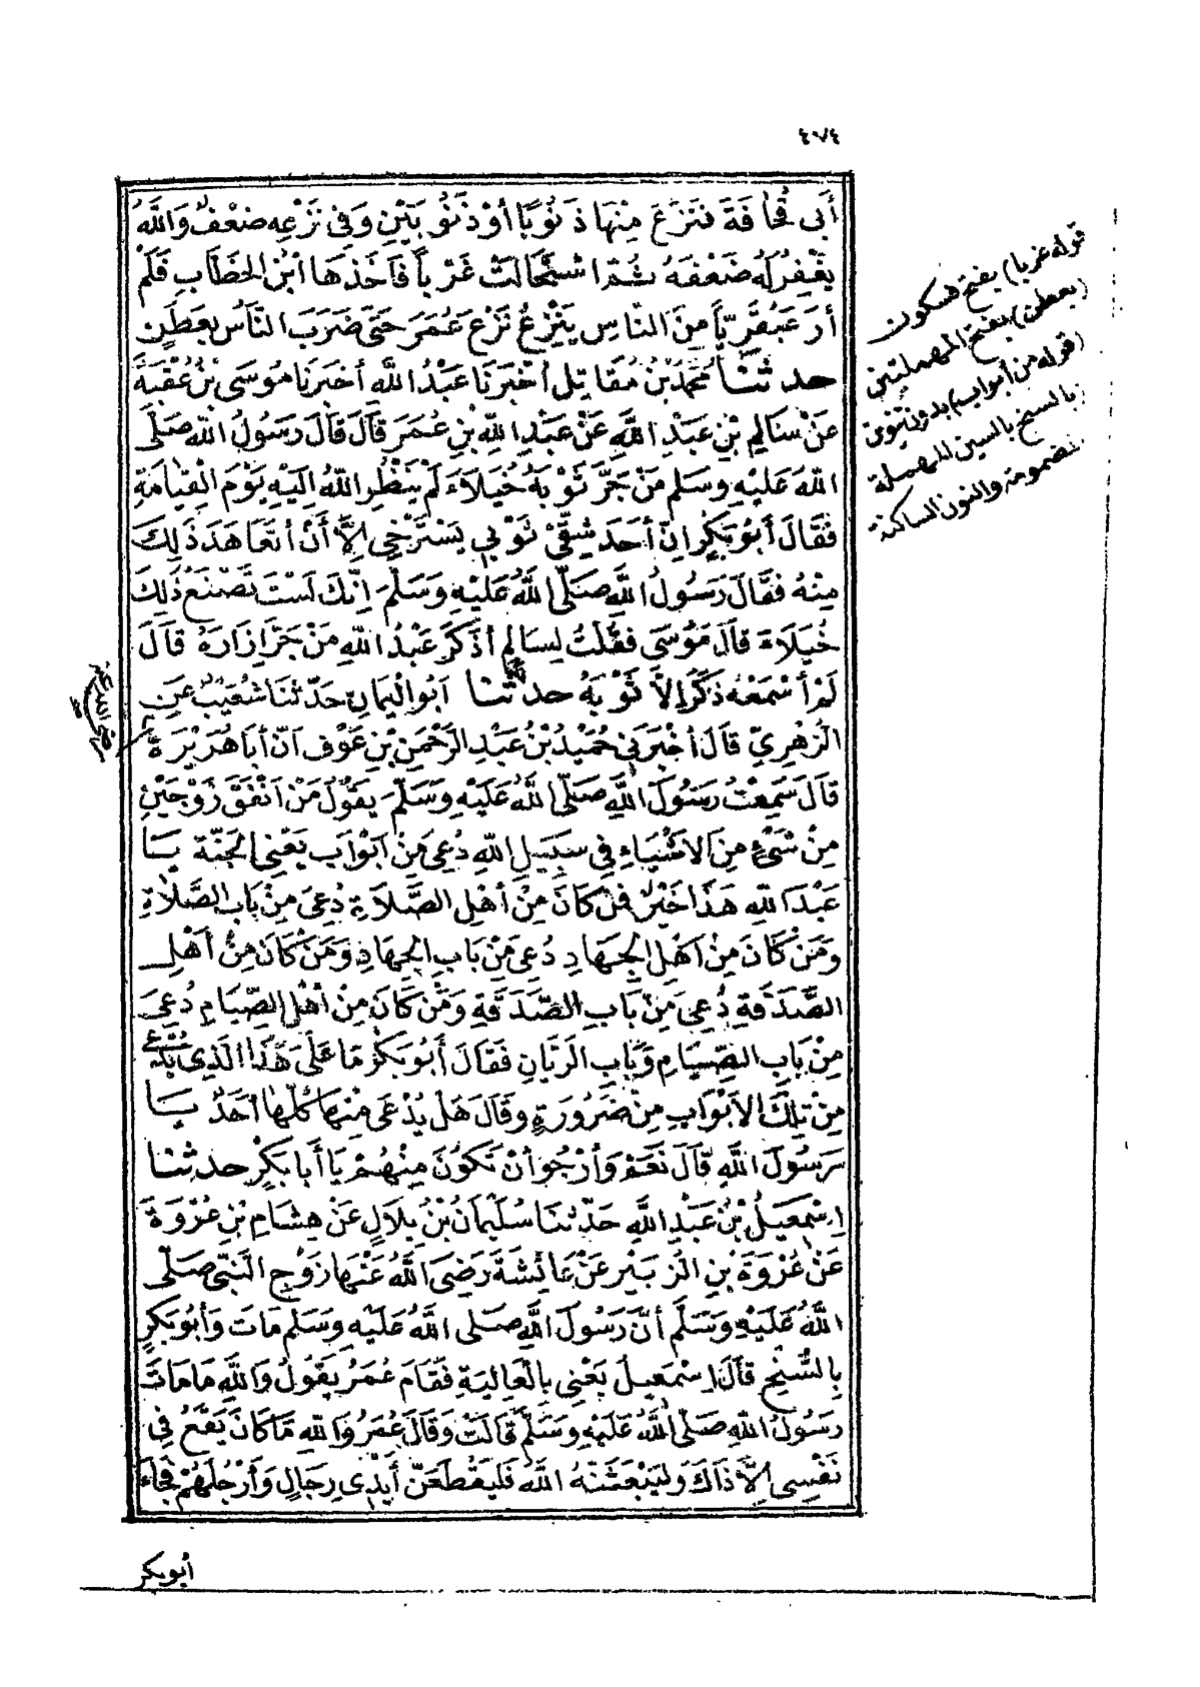 ٤٧٤
أَبِي قُحَافَةَ فَنَزَعَ مِنْهَا ذَنُوبًا أَوْ ذَنُوبَيْنِ وَفِي نَزْعِهِ ضَعْفٌ وَاللَّهُ
يَغْفِرُ لَهُ ضَعْفَهُ ثُمَّ اسْتَحَالَتْ غَرْبًا فَأَخَذَهَا ابْنُ الْخَطَّابِ فَلَمْ
أَرَ عَبْقَرِيًّا مِنَ النَّاسِ يَنْزِعُ نَزْعَ عُمَرَ حَتَّى ضَرَبَ النَّاسُ بِعَطَنٍ
حدثنا مُحَمَّدُ بْنُ مُقَاتِلٍ أَخْبَرَنَا عَبْدُ اللَّهِ أَخْبَرَنَا مُوسَى بْنُ عُقْبَةَ
عَنْ سَالِمِ بْنِ عَبْدِ اللَّهِ عَنْ عَبْدِ اللَّهِ بْنِ عُمَرَ قَالَ قَالَ رَسُولُ اللَّهِ صَلَّى
اللَّهُ عَلَيْهِ وَسَلَّمَ مَنْ جَرَّ ثَوْبَهُ خُيَلَاءَ لَمْ يَنْظُرِ اللَّهُ إِلَيْهِ يَوْمَ الْقِيَامَةِ
فَقَالَ أَبُو بَكْرٍ إِنَّ أَحَدَ شِقَّيْ ثَوْبِي يَسْتَرْخِي إِلَّا أَنْ أَتَعَاهَدَ ذَلِكَ
مِنْهُ فَقَالَ رَسُولُ اللَّهِ صَلَّى اللَّهُ عَلَيْهِ وَسَلَّمَ إِنَّكَ لَسْتَ تَصْنَعُ ذَلِكَ
خُيَلَاءَ قَالَ مُوسَى فَقُلْتُ لِسَالِمٍ أَذَكَرَ عَبْدُ اللَّهِ مَنْ جَرَّ إِزَارَهُ قَالَ
لَمْ أَسْمَعْهُ ذَكَرَ إِلَّا ثَوْبَهُ حدثنا أَبُو الْيَمَانِ حَدَّثَنَا شُعَيْبٌ عَنِ
الزُّهْرِيِّ قَالَ أَخْبَرَنِي حُمَيْدُ بْنُ عَبْدِ الرَّحْمَنِ بْنِ عَوْفٍ أَنَّ أَبَا هُرَيْرَةَ
قَالَ سَمِعْتُ رَسُولَ اللَّهِ صَلَّى اللَّهُ عَلَيْهِ وَسَلَّمَ يَقُولُ مَنْ أَنْفَقَ زَوْجَيْنِ
مِنْ شَيْءٍ مِنَ الْأَشْيَاءِ فِي سَبِيلِ اللَّهِ دُعِيَ مِنْ أَبْوَابِ يَعْنِي الْجَنَّةَ يَا
عَبْدَ اللَّهِ هَذَا خَيْرٌ فَمَنْ كَانَ مِنْ أَهْلِ الصَّلَاةِ دُعِيَ مِنْ بَابِ الصَّلَاةِ
وَمَنْ كَانَ مِنْ أَهْلِ الْجِهَادِ دُعِيَ مِنْ بَابِ الْجِهَادِ وَمَنْ كَانَ مِنْ أَهْلِ
الصَّدَقَةِ دُعِيَ مِنْ بَابِ الصَّدَقَةِ وَمَنْ كَانَ مِنْ أَهْلِ الصِّيَامِ دُعِيَ
مِنْ بَابِ الصِّيَامِ وَبَابِ الرَّيَّانِ فَقَالَ أَبُو بَكْرٍ مَا عَلَى هَذَا الَّذِي يُدْعَى
مِنْ تِلْكَ الْأَبْوَابِ مِنْ ضَرُورَةٍ وَقَالَ هَلْ يُدْعَى مِنْهَا كُلِّهَا أَحَدٌ يَا
رَسُولَ اللَّهِ قَالَ نَعَمْ وَأَرْجُو أَنْ تَكُونَ مِنْهُمْ يَا أَبَا بَكْرٍ حدثنا
إِسْمَعِيلُ بْنُ عَبْدِ اللَّهِ حَدَّثَنَا سُلَيْمَانُ بْنُ بِلَالٍ عَنْ هِشَامِ بْنِ عُرْوَةَ
عَنْ عُرْوَةَ بْنِ الزُّبَيْرِ عَنْ عَائِشَةَ رَضِيَ اللَّهُ عَنْهَا زَوْجِ النَّبِيِّ صَلَّى
اللَّهُ عَلَيْهِ وَسَلَّمَ أَنَّ رَسُولَ اللَّهِ صَلَّى اللَّهُ عَلَيْهِ وَسَلَّمَ مَاتَ وَأَبُو بَكْرٍ
بِالسُّنْحِ قَالَ إِسْمَعِيلُ يَعْنِي بِالْعَالِيَةِ فَقَامَ عُمَرُ يَقُولُ وَاللَّهِ مَا مَاتَ
رَسُولُ اللَّهِ صَلَّى اللَّهُ عَلَيْهِ وَسَلَّمَ قَالَتْ وَقَالَ عُمَرُ وَاللَّهِ مَا كَانَ يَقَعُ فِي
نَفْسِي إِلَّا ذَاكَ وَلَيَبْعَثَنَّهُ اللَّهُ فَلَيَقْطَعَنَّ أَيْدِي رِجَالٍ وَأَرْجُلَهُمْ فَجَاءَ
أبوبكر
قوله غربا) بفتح فسكون
(بعطن) بفتح المهملتين
(قوله من أبواب) بدون تنوين
بالسنح بالسين المهملة
مضمومة والنون الساكنة
رضي الله عنه